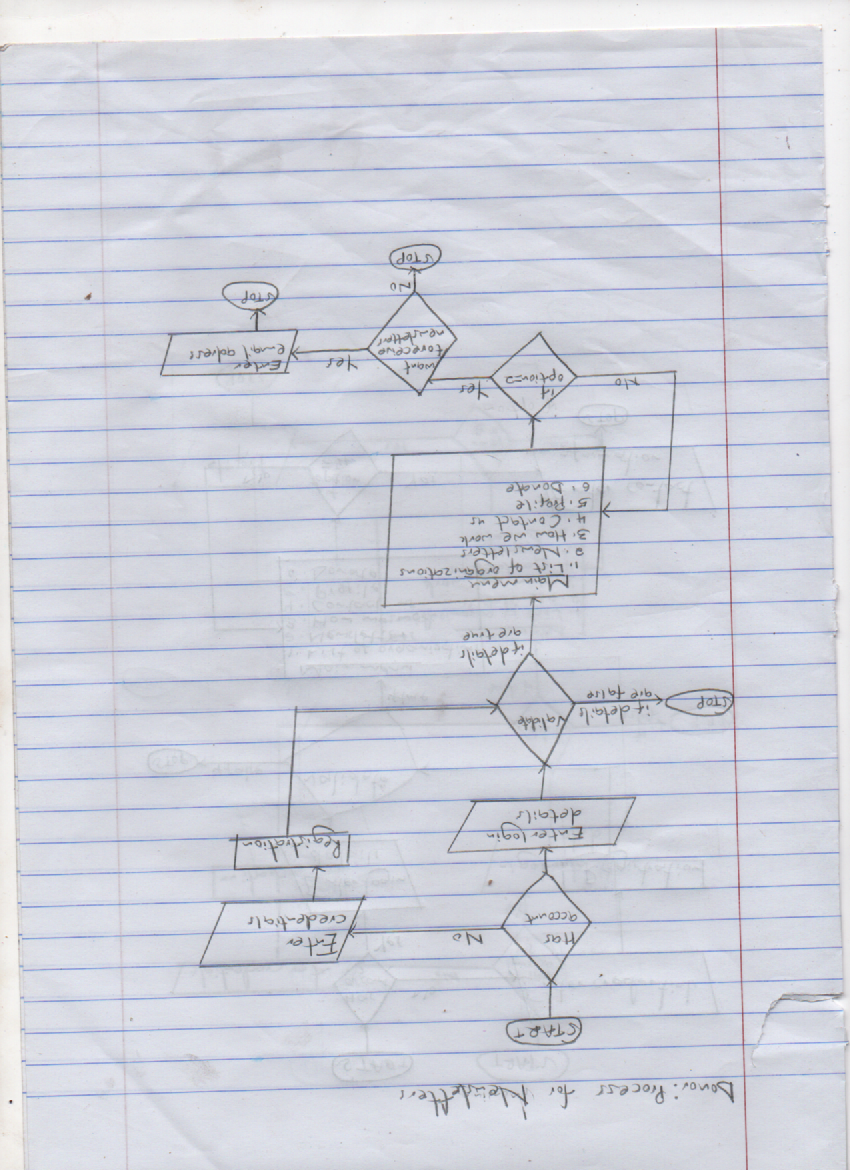 Donor: Process for Newsletters
START
Has
account
No
Enter
credentials
Registration
Enter login
details
Validate
if details
are false
STOP
if details
are true
Main menu
1. List of organizations
2. Newsletters
3. How we work
4. Contact us
5. Profile
6. Donate
if
option=2
No
Yes
want
to receive
newsletter
Yes
Enter
email adress
STOP
No
STOP